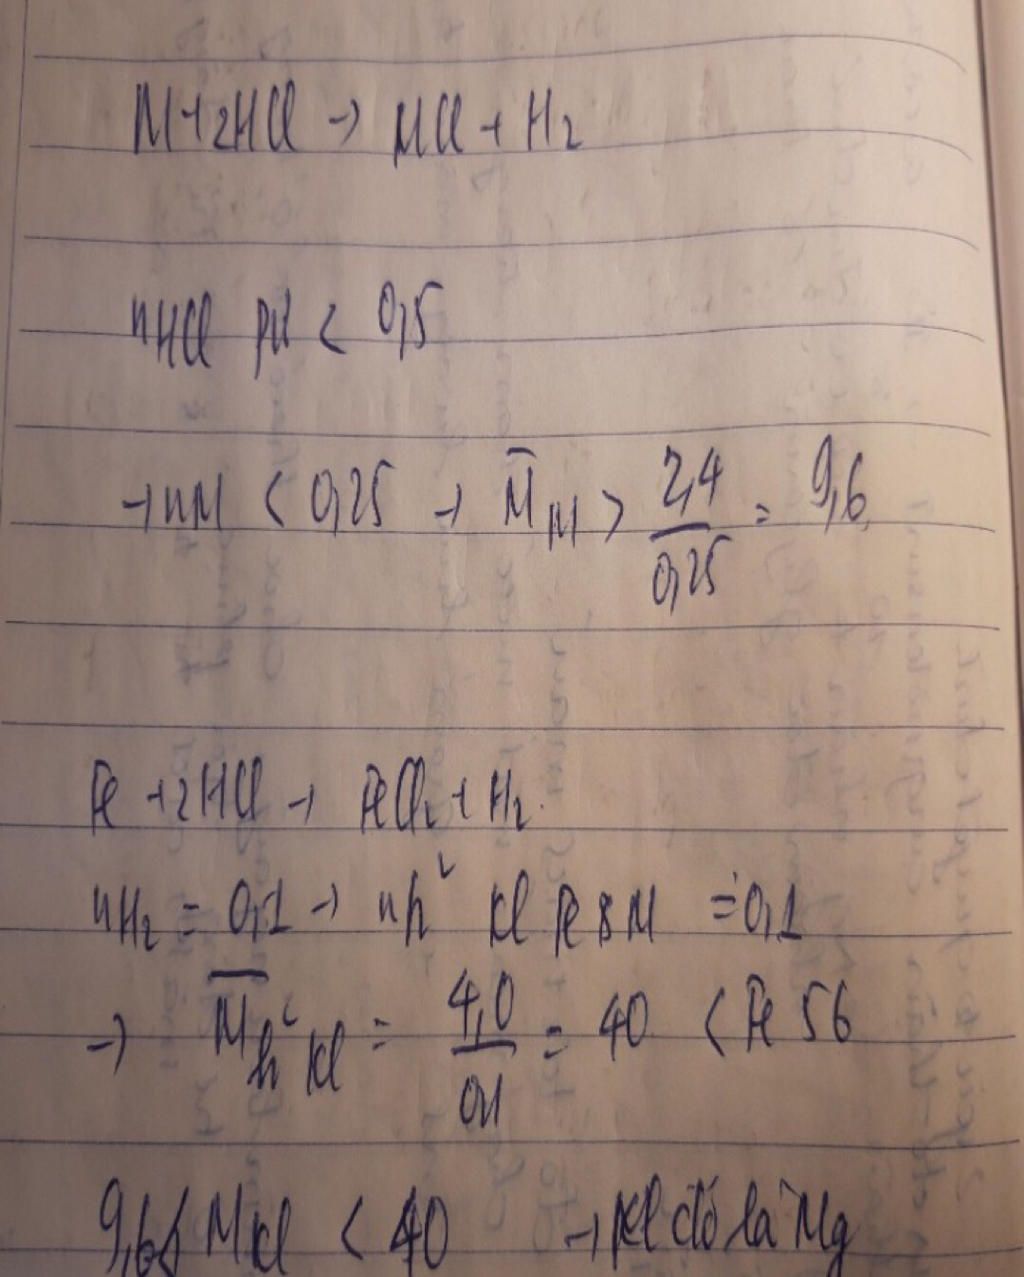 M+2HCl → MCl + H2
nHCl pư < 0,5
→ nM < 0,25 → M̄M > 2,4/0,25 = 9,6
Fe +2HCl → FeCl2 + H2.
nH2 = 0,1 → nh² Kl Fe & M = 0,1
→ M̄h² Kl = 4,0/0,1 = 40 < Fe 56
9,6 < MKl < 40 → Kl đó là Mg